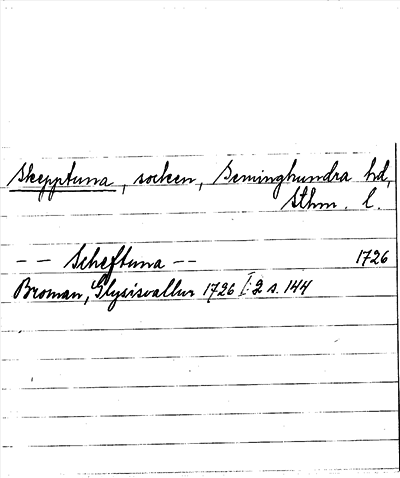 Skepptuna, socken, Seminghundra hd,
Sthm. l.
-- Scheftuna -- 1726
Broman, Glysisvallur 1726 I:2 s. 144